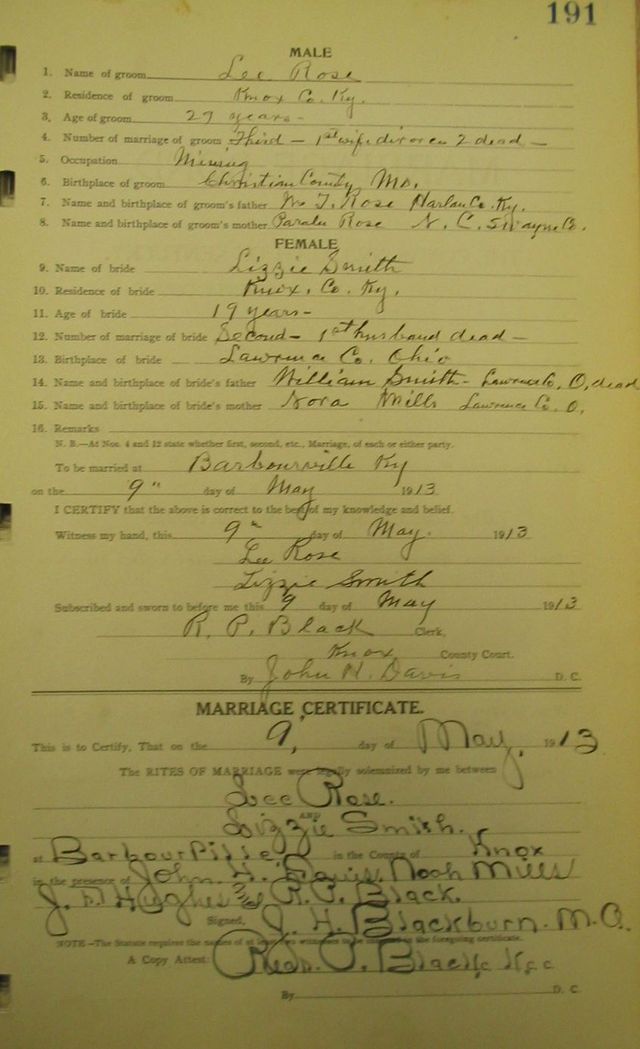 191
MALE
1. Name of groom Lee Rose
2. Residence of groom Knox Co. Ky.
3. Age of groom 27 years-
4. Number of marriage of groom Third - 1st wife divorce 2 dead -
5. Occupation Mining
6. Birthplace of groom Christian County Mo.
7. Name and birthplace of groom's father Wm T. Rose Harlan Co. Ky.
8. Name and birthplace of groom's mother Rose N. C. Swayne Co.
FEMALE
9. Name of bride Lizzie Smith
10. Residence of bride Knox. Co. Ky.
11. Age of bride 19 years-
12. Number of marriage of bride Second- 1st husband dead-
13. Birthplace of bride Lawrence Co. Ohio
14. Name and birthplace of bride's father William Smith- Lawrence Co, O, dead
15. Name and birthplace of bride's mother Nora Mills Lawrence Co. O.
16. Remarks
N. B.—At Nos. 4 and 12 state whether first, second, etc., Marriage, of each or either party.
To be married at Barbourville Ky
on the 9" day of May 1913
I CERTIFY that the above is correct to the best of my knowledge and belief.
Witness my hand, this 9" day of May. 1913
Lee Rose
Lizzie Smith
Subscribed and sworn to before me this 9 day of May 1913
R. P. Black Clerk,
Knox County Court.
By John H. Davis D. C.
MARRIAGE CERTIFICATE.
This is to Certify, That on the 9, day of May, 1913
The RITES OF MARRIAGE were legally solemnized by me between
Lee Rose.
AND
Lizzie Smith.
at Barbourville in the County of Knox
in the presence of John H. Davis, Noah Mills
J. F. Hughes and R. P. Black.
Signed, J. H. Blackburn. M.G.
NOTE—The Statute requires the names of at least two witnesses to be inserted in the foregoing certificate.
A Copy Attest: P. Black
By D. C.